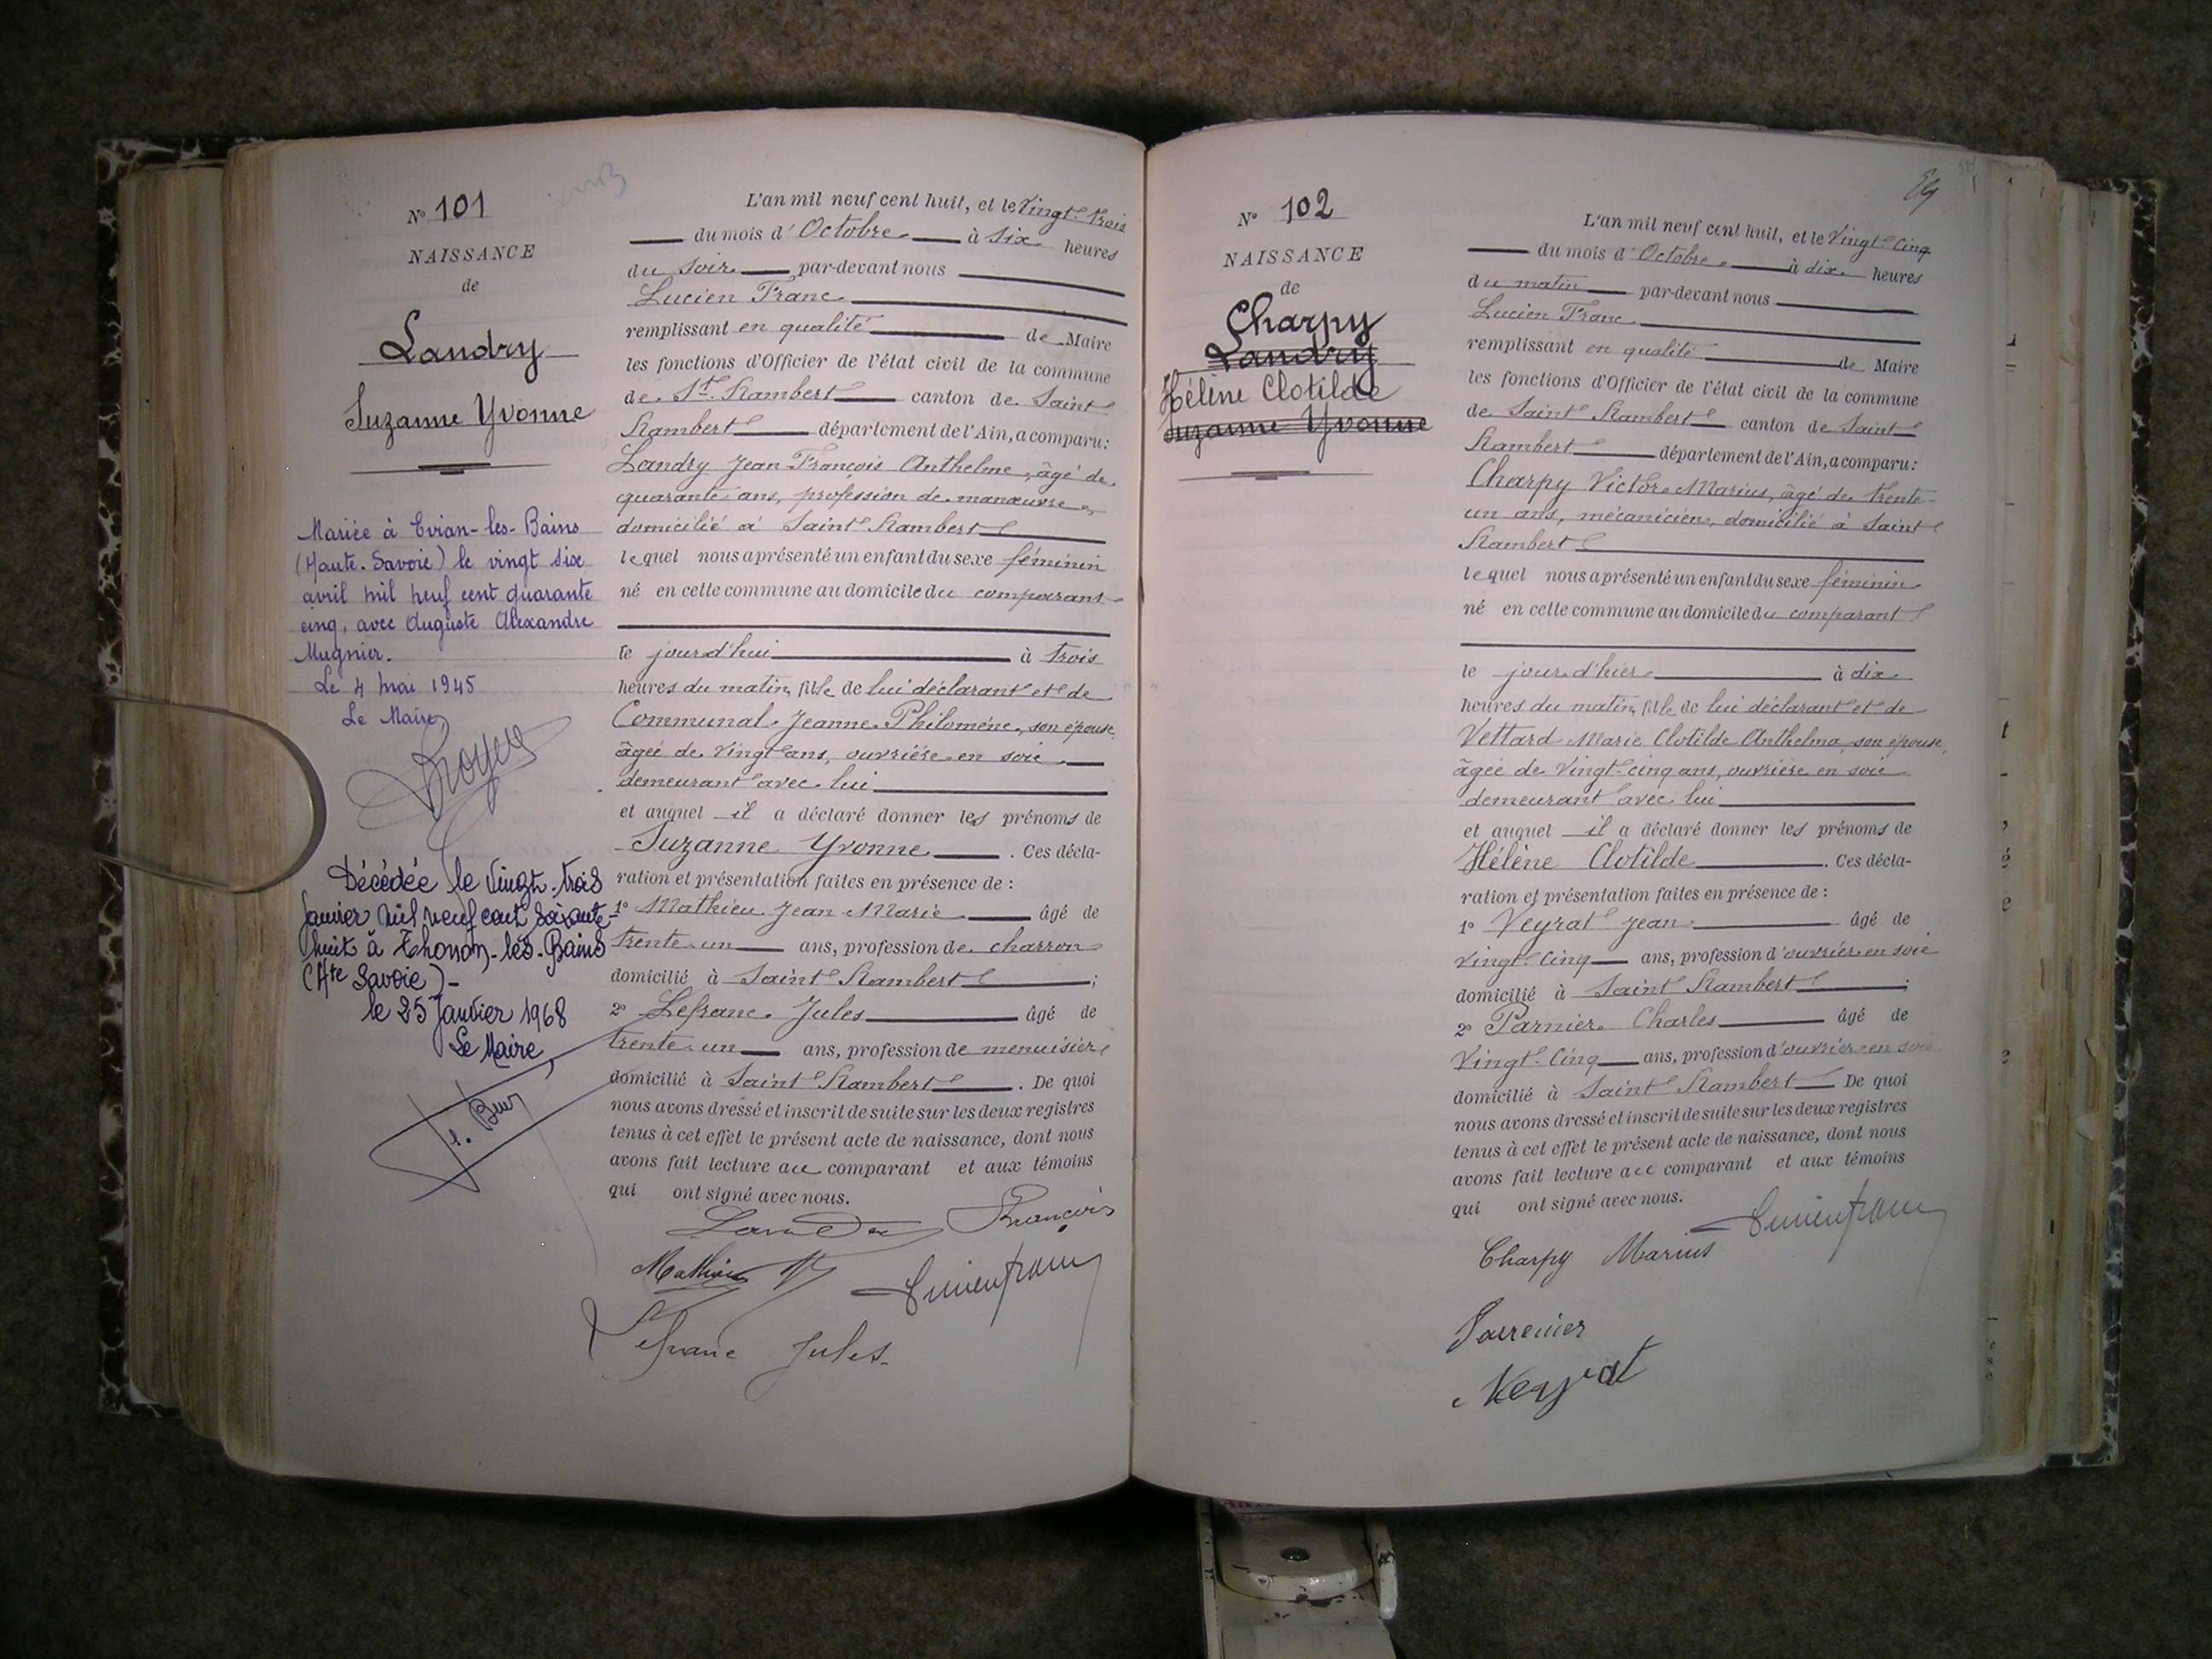 N° 101
NAISSANCE
de
Landry
Suzanne Yvonne
Mariée à Evian-les-Bains
(Haute-Savoie) le vingt six
avril mil neuf cent quarante
cinq, avec Auguste Alexandre
Mugnier.
Le 4 mai 1945
Le Maire,
Décédée le Vingt-trois
Janvier mil neuf cent soixante-
huit à Thonon-les-Bains
(Hte Savoie)-
le 25 Janvier 1968
Le Maire,
L'an mil neuf cent huit, et le Vingt-trois
du mois d'Octobre à six heures
du soir par-devant nous
Lucien Franc
remplissant en qualité de Maire
les fonctions d'Officier de l'état civil de la commune
de St. Rambert canton de Saint
Rambert département de l'Ain, a comparu :
Landry Jean François Anthelme, âgé de
quarante ans, profession de manœuvre
domicilié à Saint Rambert
lequel nous a présenté un enfant du sexe féminin
né en cette commune au domicile du comparant
le jourd'hui à trois
heures du matin, fille de lui déclarant et de
Communal Jeanne Philomène, son épouse,
âgée de vingt ans, ouvrière en soie
demeurant avec lui
et auquel il a déclaré donner les prénoms de
Suzanne Yvonne . Ces décla-
ration et présentation faites en présence de :
1° Mathieu Jean Marie âgé de
trente-un ans, profession de charron
domicilié à Saint Rambert ;
2° Lefranc Jules âgé de
trente-un ans, profession de menuisier
domicilié à Saint Rambert . De quoi
nous avons dressé et inscrit de suite sur les deux registres
tenus à cet effet le présent acte de naissance, dont nous
avons fait lecture au comparant et aux témoins
qui ont signé avec nous.
François
Mathieu
Lucien franc
Lefranc Jules
N° 102
NAISSANCE
de
Charpy
Landry
Hélène Clotilde
Suzanne Yvonne
L'an mil neuf cent huit, et le Vingt-cinq
du mois d'Octobre à dix heures
du matin par-devant nous
Lucien Franc
remplissant en qualité de Maire
les fonctions d'Officier de l'état civil de la commune
de Saint Rambert canton de Saint
Rambert département de l'Ain, a comparu :
Charpy Victor Marius, âgé de trente-
un ans, mécanicien, domicilié à Saint
Rambert
lequel nous a présenté un enfant du sexe féminin
né en cette commune au domicile du comparant
le jour d'hier à dix
heures du matin, fille de lui déclarant et de
Vettard Marie Clotilde Anthelma, son épouse,
âgée de vingt-cinq ans, ouvrière en soie
demeurant avec lui
et auquel il a déclaré donner les prénoms de
Hélène Clotilde . Ces décla-
ration et présentation faites en présence de :
1° Veyrat Jean âgé de
vingt-cinq ans, profession d'ouvrier en soie
domicilié à Saint Rambert ;
2° Parnier Charles âgé de
Vingt-Cinq ans, profession d'ouvrier en soie
domicilié à Saint Rambert De quoi
nous avons dressé et inscrit de suite sur les deux registres
tenus à cet effet le présent acte de naissance, dont nous
avons fait lecture au comparant et aux témoins
qui ont signé avec nous.
Lucien franc
Charpy Marius
Veyrat